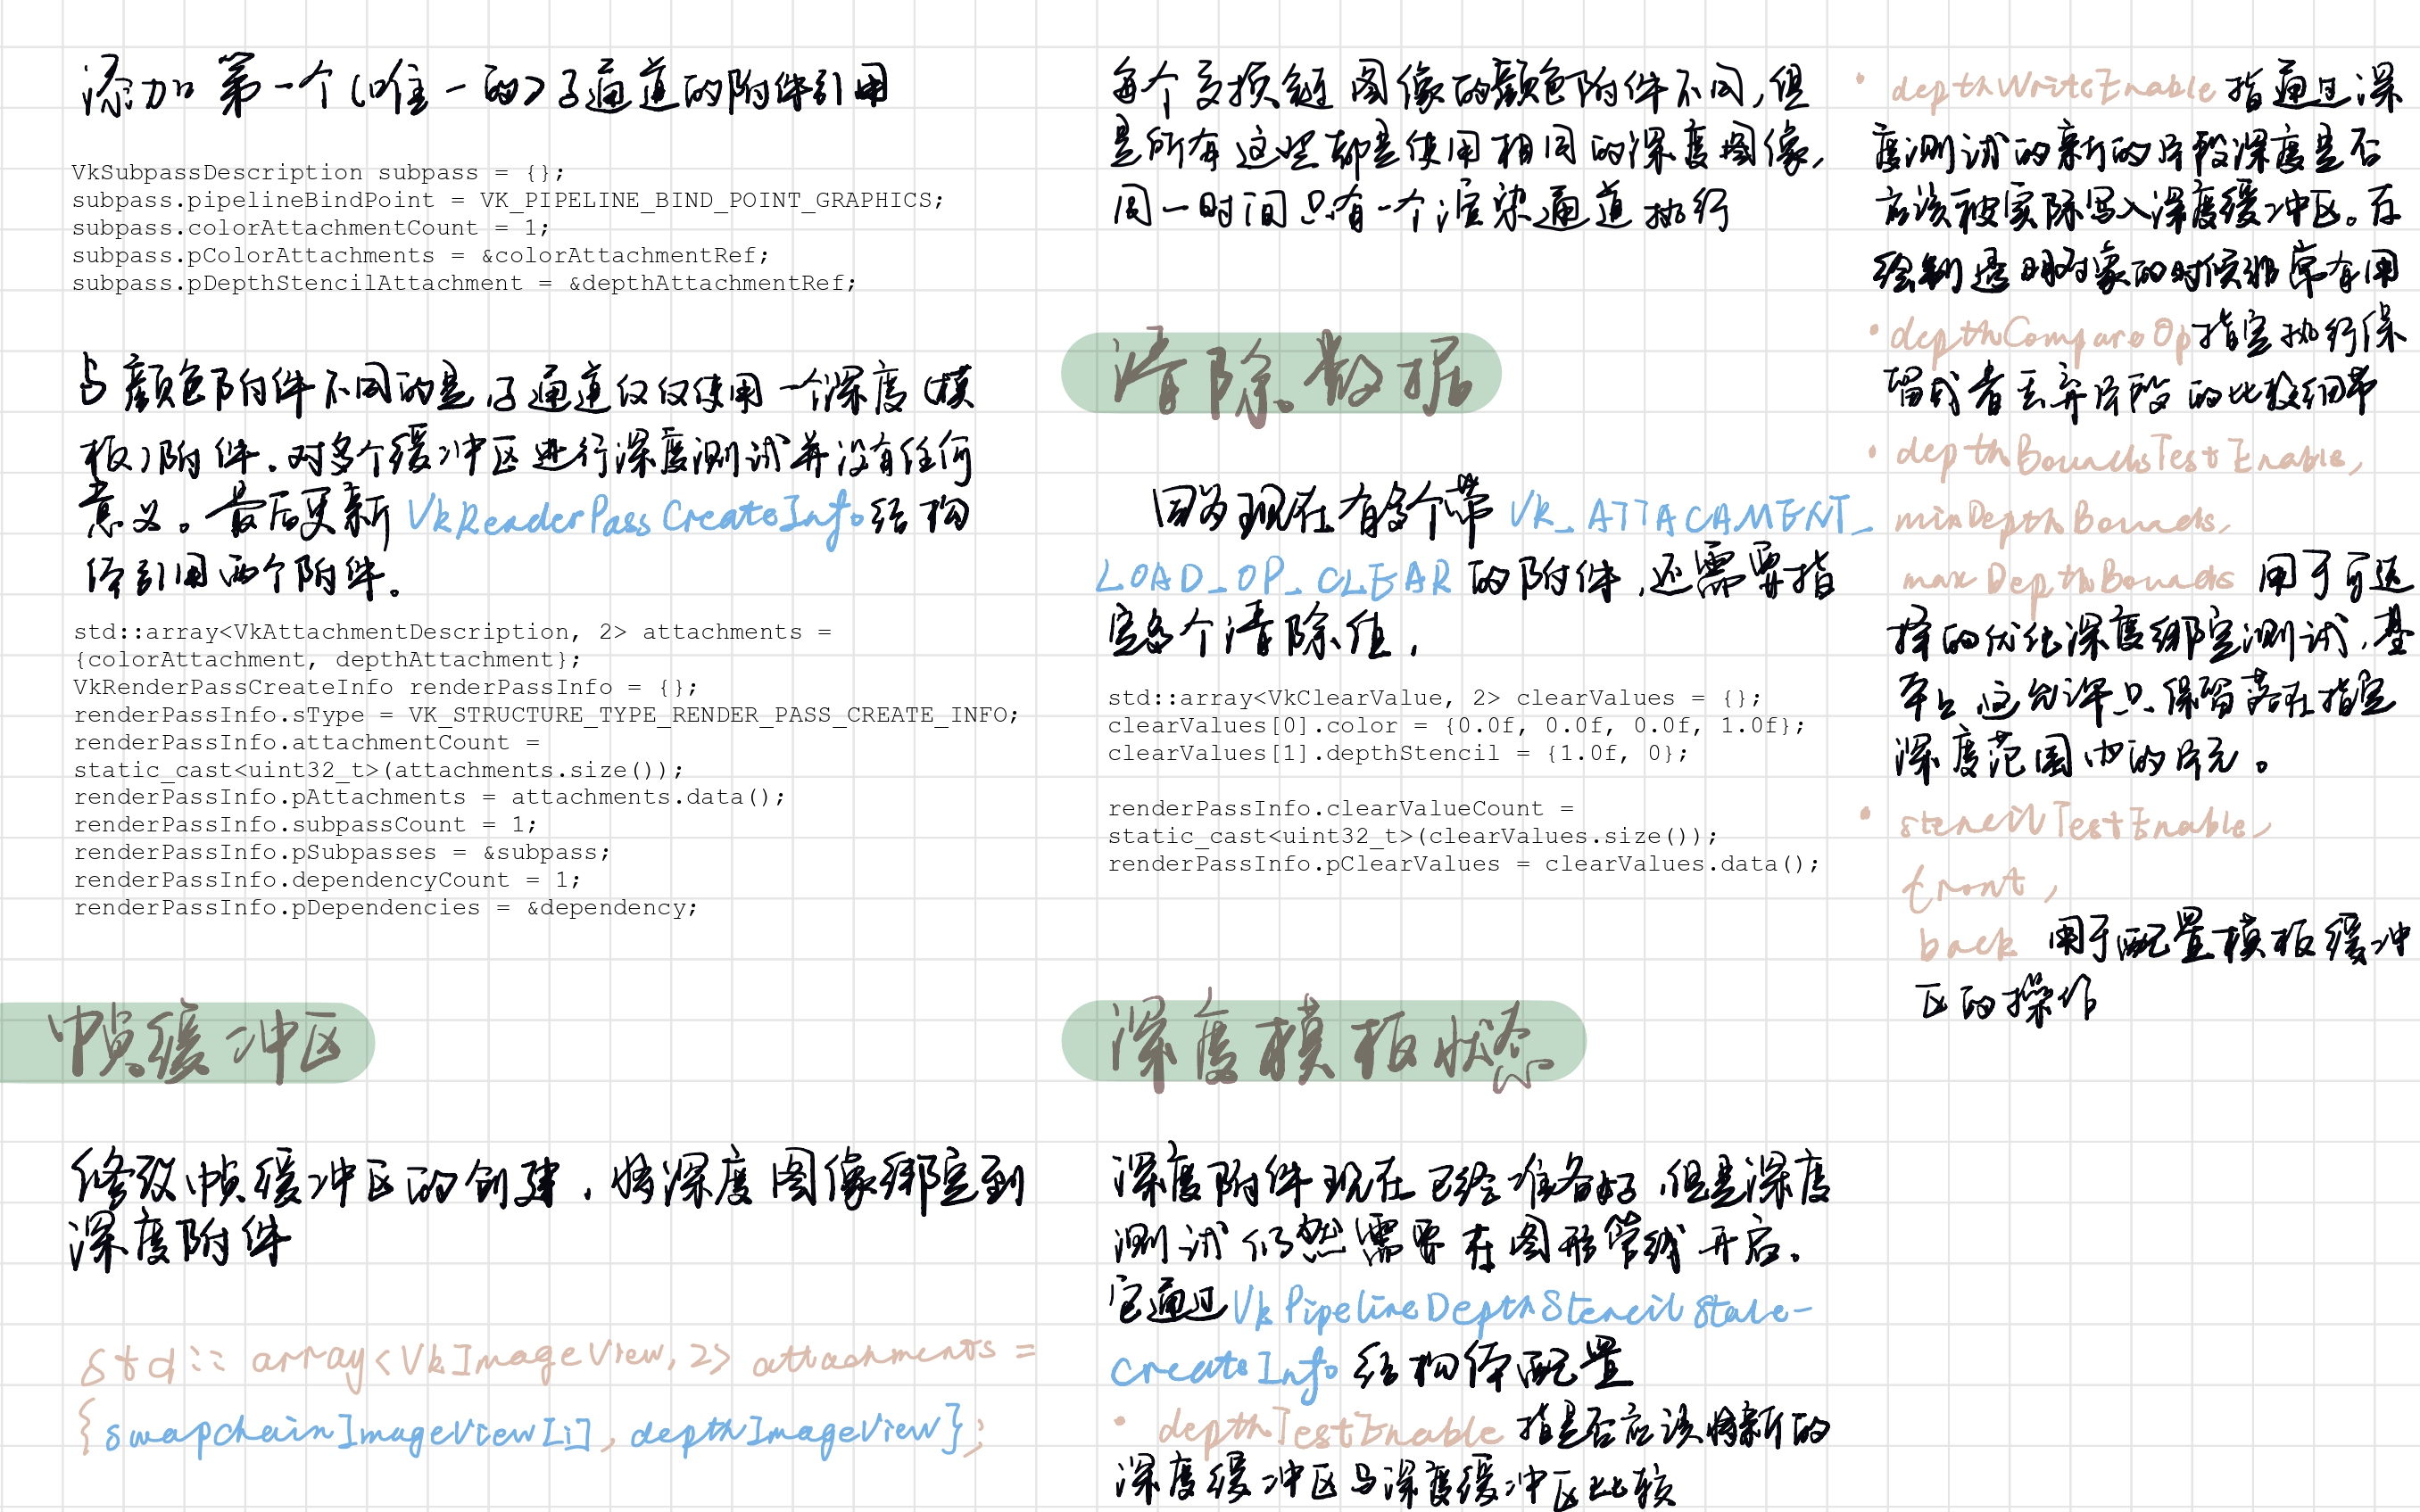 添加第一个(唯一的)子通道的附件引用
VkSubpassDescription subpass = {};
subpass.pipelineBindPoint = VK_PIPELINE_BIND_POINT_GRAPHICS;
subpass.colorAttachmentCount = 1;
subpass.pColorAttachments = &colorAttachmentRef;
subpass.pDepthStencilAttachment = &depthAttachmentRef;
与颜色附件不同的是,子通道仅仅使用一个深度(模
板)附件。对多个缓冲区进行深度测试并没有任何
意义。最后更新 VkRenderPassCreateInfo结构
体引用两个附件。
std::array<VkAttachmentDescription, 2> attachments =
{colorAttachment, depthAttachment};
VkRenderPassCreateInfo renderPassInfo = {};
renderPassInfo.sType = VK_STRUCTURE_TYPE_RENDER_PASS_CREATE_INFO;
renderPassInfo.attachmentCount =
static_cast<uint32_t>(attachments.size());
renderPassInfo.pAttachments = attachments.data();
renderPassInfo.subpassCount = 1;
renderPassInfo.pSubpasses = &subpass;
renderPassInfo.dependencyCount = 1;
renderPassInfo.pDependencies = &dependency;
帧缓冲区
修改帧缓冲区的创建,将深度图像绑定到
深度附件
std::array<VkImageView,2> attachments =
{swapchainImageView[i], depthImageView};
每个交换链图像的颜色附件不同,但
是所有这些都是使用相同的深度图像,
同一时间只有一个渲染通道执行
清除数据
因为现在有多个带 VK_ATTACAMENT_
LOAD_OP_CLEAR 的附件,还需要指
定多个清除值,
std::array<VkClearValue, 2> clearValues = {};
clearValues[0].color = {0.0f, 0.0f, 0.0f, 1.0f};
clearValues[1].depthStencil = {1.0f, 0};
renderPassInfo.clearValueCount =
static_cast<uint32_t>(clearValues.size());
renderPassInfo.pClearValues = clearValues.data();
深度模板状态
深度附件现在已经准备好,但是深度
测试仍然需要在图形管线开启。
它通过VkPipelineDepthStencilState-
CreateInfo 结构体配置
• depthTestEnable 指是否应该将新的
深度缓冲区与深度缓冲区比较
• depthWriteEnable 指通过深
度测试的新的片段深度是否
应该被实际写入深度缓冲区。在
绘制透明对象的时候非常有用
• depthCompareOp指定执行保
留或者丢弃片段的比较细节
• depthBoundsTestEnable,
minDepthBounds,
maxDepthBounds 用于可选
择的优化深度绑定测试,基
本上这允许只保留落在指定
深度范围内的片元。
• stencilTestEnable,
front,
back 用于配置模板缓冲
区的操作